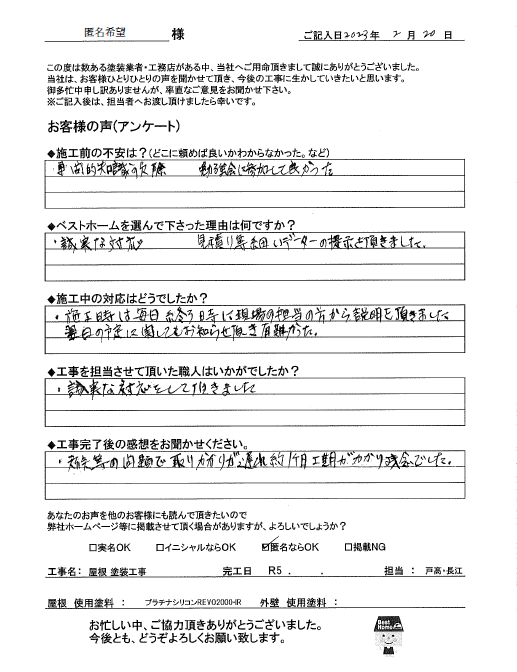 匿名希望 様
ご記入日2023年 2月 20日
この度は数ある塗装業者・工務店がある中、当社へご用命頂きまして誠にありがとうございました。
当社は、お客様ひとりひとりの声を聞かせて頂き、今後の工事に生かしていきたいと思います。
御多忙中申し訳ありませんが、率直なご意見をお聞かせ下さい。
※ご記入後は、担当者へお渡し頂けましたら幸いです。
お客様の声(アンケート)
◆施工前の不安は?(どこに頼めば良いかわからなかった。など)
・専門的知識の欠除 勉強会に参加して良かった
◆ベストホームを選んで下さった理由は何ですか?
・誠実な対応 見積り等細いデーターの提示を頂きました。
◆施工中の対応はどうでしたか?
・施工時は毎日終る時は現場の担当の方から説明を頂きました
翌日の予定に関してもお知らせ頂き有難かった。
◆工事を担当させて頂いた職人はいかがでしたか?
・誠実な対応をして頂きました
◆工事完了後の感想をお聞かせください。
・天候等の問題で取りかかりが遅れ約1ケ月工期がかかり残念でした。
あなたのお声を他のお客様にも読んで頂きたいので
弊社ホームページ等に掲載させて頂く場合がありますが、よろしいでしょうか?
□実名OK □イニシャルならOK ☑匿名ならOK □掲載NG
工事名: 屋根 塗装工事 完工日 R5 . . 担当: 戸高・長江
屋根 使用塗料: プラチナシリコンREVO2000-IR 外壁 使用塗料:
お忙しい中、ご協力頂きありがとうございました。
今後とも、どうぞよろしくお願い致します。
Best Home